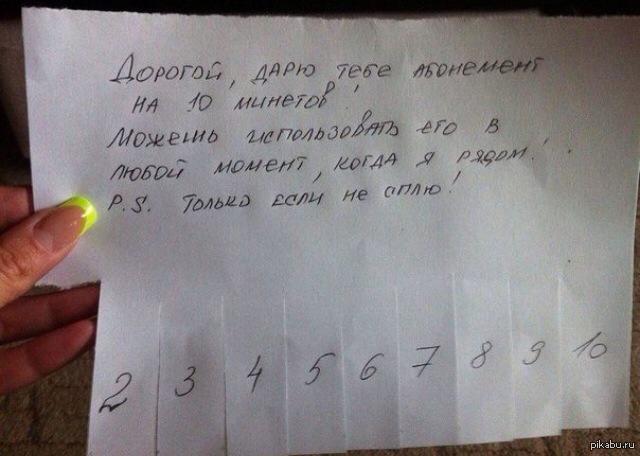 Дорогой, дарю тебе абонемент
на 10 минетов!
Можешь использовать его в
любой момент, когда я рядом!
P.S. только если не сплю!
2 3 4 5 6 7 8 9 10
pikabu.ru